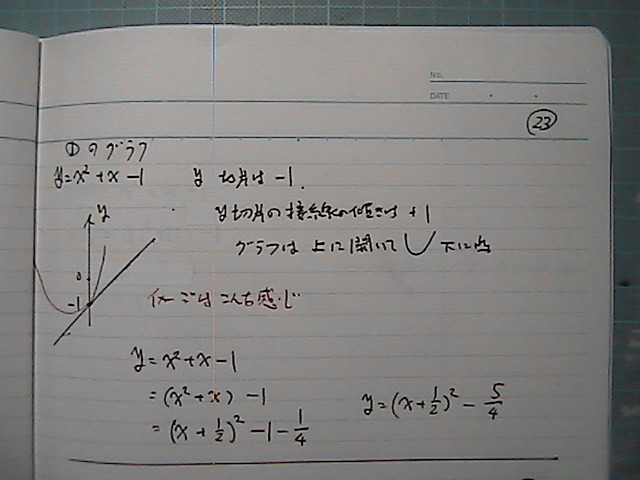 NO.
DATE
23
①のグラフ
y=x²+x-1 y切片は-1.
y切片の接線の傾きは+1
グラフは上に開いて∪下に凸
y
0
-1
イメージはこんな感じ
y=x²+x-1
=(x²+x)-1
=(x+1/2)²-1-1/4 y=(x+1/2)²-5/4